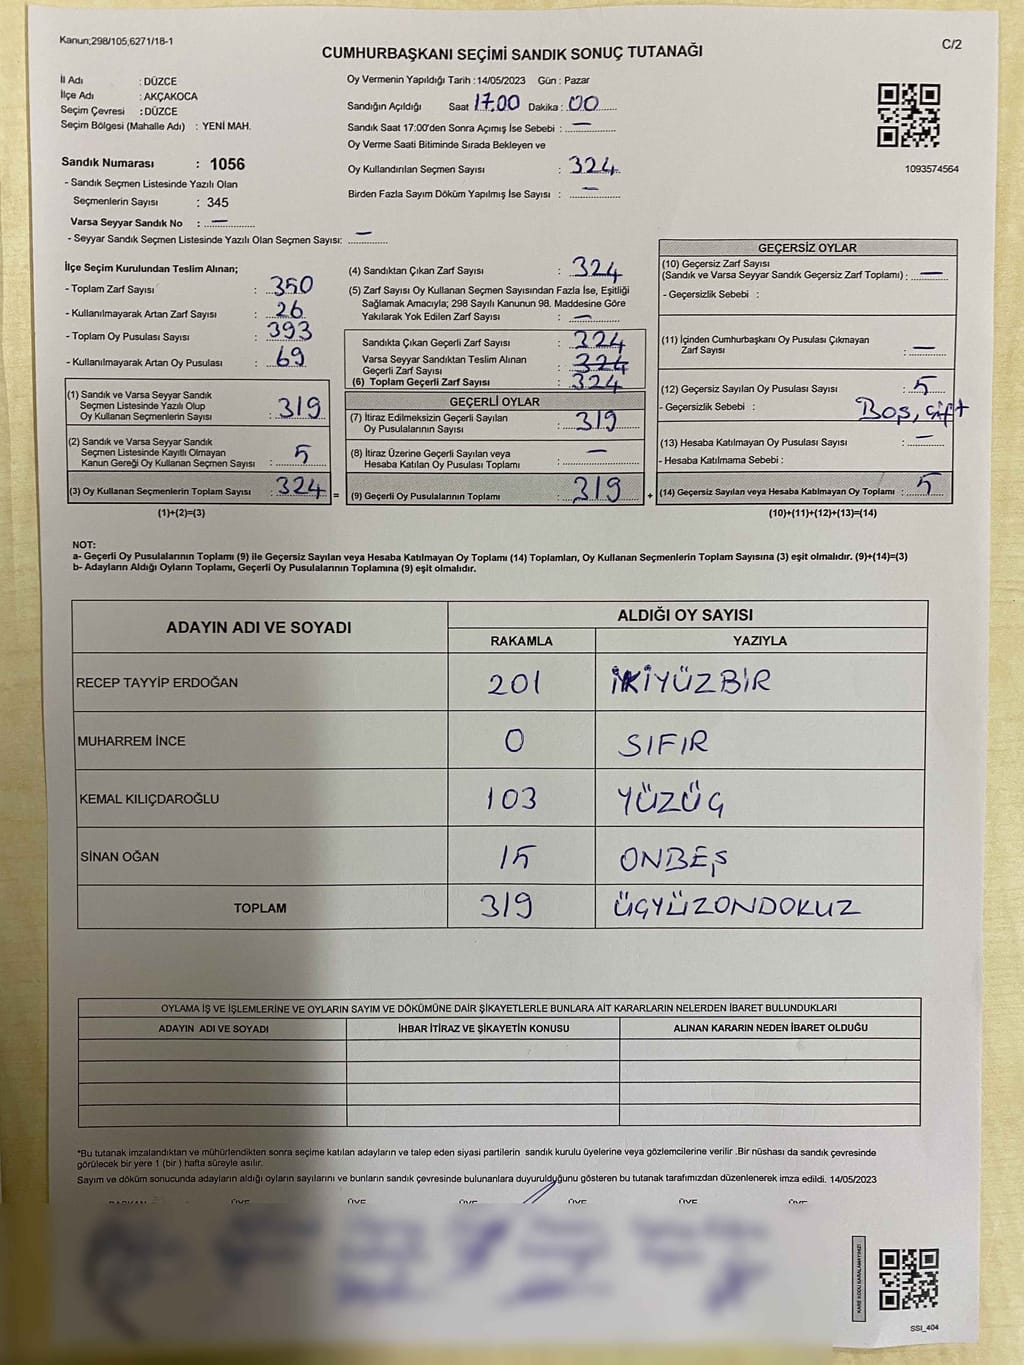 Kanun;298/105,6271/18-1
C/2
CUMHURBAŞKANI SEÇİMİ SANDIK SONUÇ TUTANAĞI
İl Adı : DÜZCE
İlçe Adı : AKÇAKOCA
Seçim Çevresi : DÜZCE
Seçim Bölgesi (Mahalle Adı) : YENİ MAH.
Sandık Numarası : 1056
- Sandık Seçmen Listesinde Yazılı Olan
Seçmenlerin Sayısı : 345
Varsa Seyyar Sandık No : —
- Seyyar Sandık Seçmen Listesinde Yazılı Olan Seçmen Sayısı: —
Oy Vermenin Yapıldığı Tarih : 14/05/2023 Gün : Pazar
Sandığın Açıldığı Saat 17.00 Dakika : 00
Sandık Saat 17:00'den Sonra Açımış İse Sebebi : —
Oy Verme Saati Bitiminde Sırada Bekleyen ve
Oy Kullandırılan Seçmen Sayısı : 324
Birden Fazla Sayım Döküm Yapılmış İse Sayısı : —
1093574564
İlçe Seçim Kurulundan Teslim Alınan;
- Toplam Zarf Sayısı : 350
- Kullanılmayarak Artan Zarf Sayısı : 26
- Toplam Oy Pusulası Sayısı : 393
- Kullanılmayarak Artan Oy Pusulası : 69
(1) Sandık ve Varsa Seyyar Sandık
Seçmen Listesinde Yazılı Olup
Oy Kullanan Seçmenlerin Sayısı : 319
(2) Sandık ve Varsa Seyyar Sandık
Seçmen Listesinde Kayıtlı Olmayan
Kanun Gereği Oy Kullanan Seçmen Sayısı : 5
(3) Oy Kullanan Seçmenlerin Toplam Sayısı : 324 =
(1)+(2)=(3)
(4) Sandıktan Çıkan Zarf Sayısı : 324
(5) Zarf Sayısı Oy Kullanan Seçmen Sayısından Fazla İse, Eşitliği
Sağlamak Amacıyla; 298 Sayılı Kanunun 98. Maddesine Göre
Yakılarak Yok Edilen Zarf Sayısı : —
Sandıkta Çıkan Geçerli Zarf Sayısı : 324
Varsa Seyyar Sandıktan Teslim Alınan
Geçerli Zarf Sayısı : 324
(6) Toplam Geçerli Zarf Sayısı : 324
GEÇERLİ OYLAR
(7) İtiraz Edilmeksizin Geçerli Sayılan
Oy Pusulalarının Sayısı : 319
(8) İtiraz Üzerine Geçerli Sayılan veya
Hesaba Katılan Oy Pusulası Toplamı : —
(9) Geçerli Oy Pusulalarının Toplamı : 319 +
GEÇERSİZ OYLAR
(10) Geçersiz Zarf Sayısı
(Sandık ve Varsa Seyyar Sandık Geçersiz Zarf Toplamı) : —
- Geçersizlik Sebebi :
(11) İçinden Cumhurbaşkanı Oy Pusulası Çıkmayan
Zarf Sayısı : —
(12) Geçersiz Sayılan Oy Pusulası Sayısı : 5
- Geçersizlik Sebebi : Boş, çift
(13) Hesaba Katılmayan Oy Pusulası Sayısı : —
- Hesaba Katılmama Sebebi :
(14) Geçersiz Sayılan veya Hesaba Katılmayan Oy Toplamı : 5
(10)+(11)+(12)+(13)=(14)
NOT:
a- Geçerli Oy Pusulalarının Toplamı (9) ile Geçersiz Sayılan veya Hesaba Katılmayan Oy Toplamı (14) Toplamları, Oy Kullanan Seçmenlerin Toplam Sayısına (3) eşit olmalıdır. (9)+(14)=(3)
b- Adayların Aldığı Oyların Toplamı, Geçerli Oy Pusulalarının Toplamına (9) eşit olmalıdır.
ADAYIN ADI VE SOYADI
ALDIĞI OY SAYISI
RAKAMLA YAZIYLA
RECEP TAYYİP ERDOĞAN 201 İKİYÜZBİR
MUHARREM İNCE 0 SIFIR
KEMAL KILIÇDAROĞLU 103 YÜZÜÇ
SİNAN OĞAN 15 ONBEŞ
TOPLAM 319 ÜÇYÜZONDOKUZ
OYLAMA İŞ VE İŞLEMLERİNE VE OYLARIN SAYIM VE DÖKÜMÜNE DAİR ŞİKAYETLERLE BUNLARA AİT KARARLARIN NELERDEN İBARET BULUNDUKLARI
ADAYIN ADI VE SOYADI İHBAR İTİRAZ VE ŞİKAYETİN KONUSU ALINAN KARARIN NEDEN İBARET OLDUĞU
*Bu tutanak imzalandıktan ve mühürlendikten sonra seçime katılan adayların ve talep eden siyasi partilerin sandık kurulu üyelerine veya gözlemcilerine verilir .Bir nüshası da sandık çevresinde
görülecek bir yere 1 (bir ) hafta süreyle asılır.
Sayım ve döküm sonucunda adayların aldığı oyların sayılarını ve bunların sandık çevresinde bulunanlara duyurulduğunu gösteren bu tutanak tarafımızdan düzenlenerek imza edildi. 14/05/2023
BAŞKAN ÜYE ÜYE ÜYE ÜYE ÜYE ÜYE
KARE KODU KARALAMAYINIZ!
SSI_404